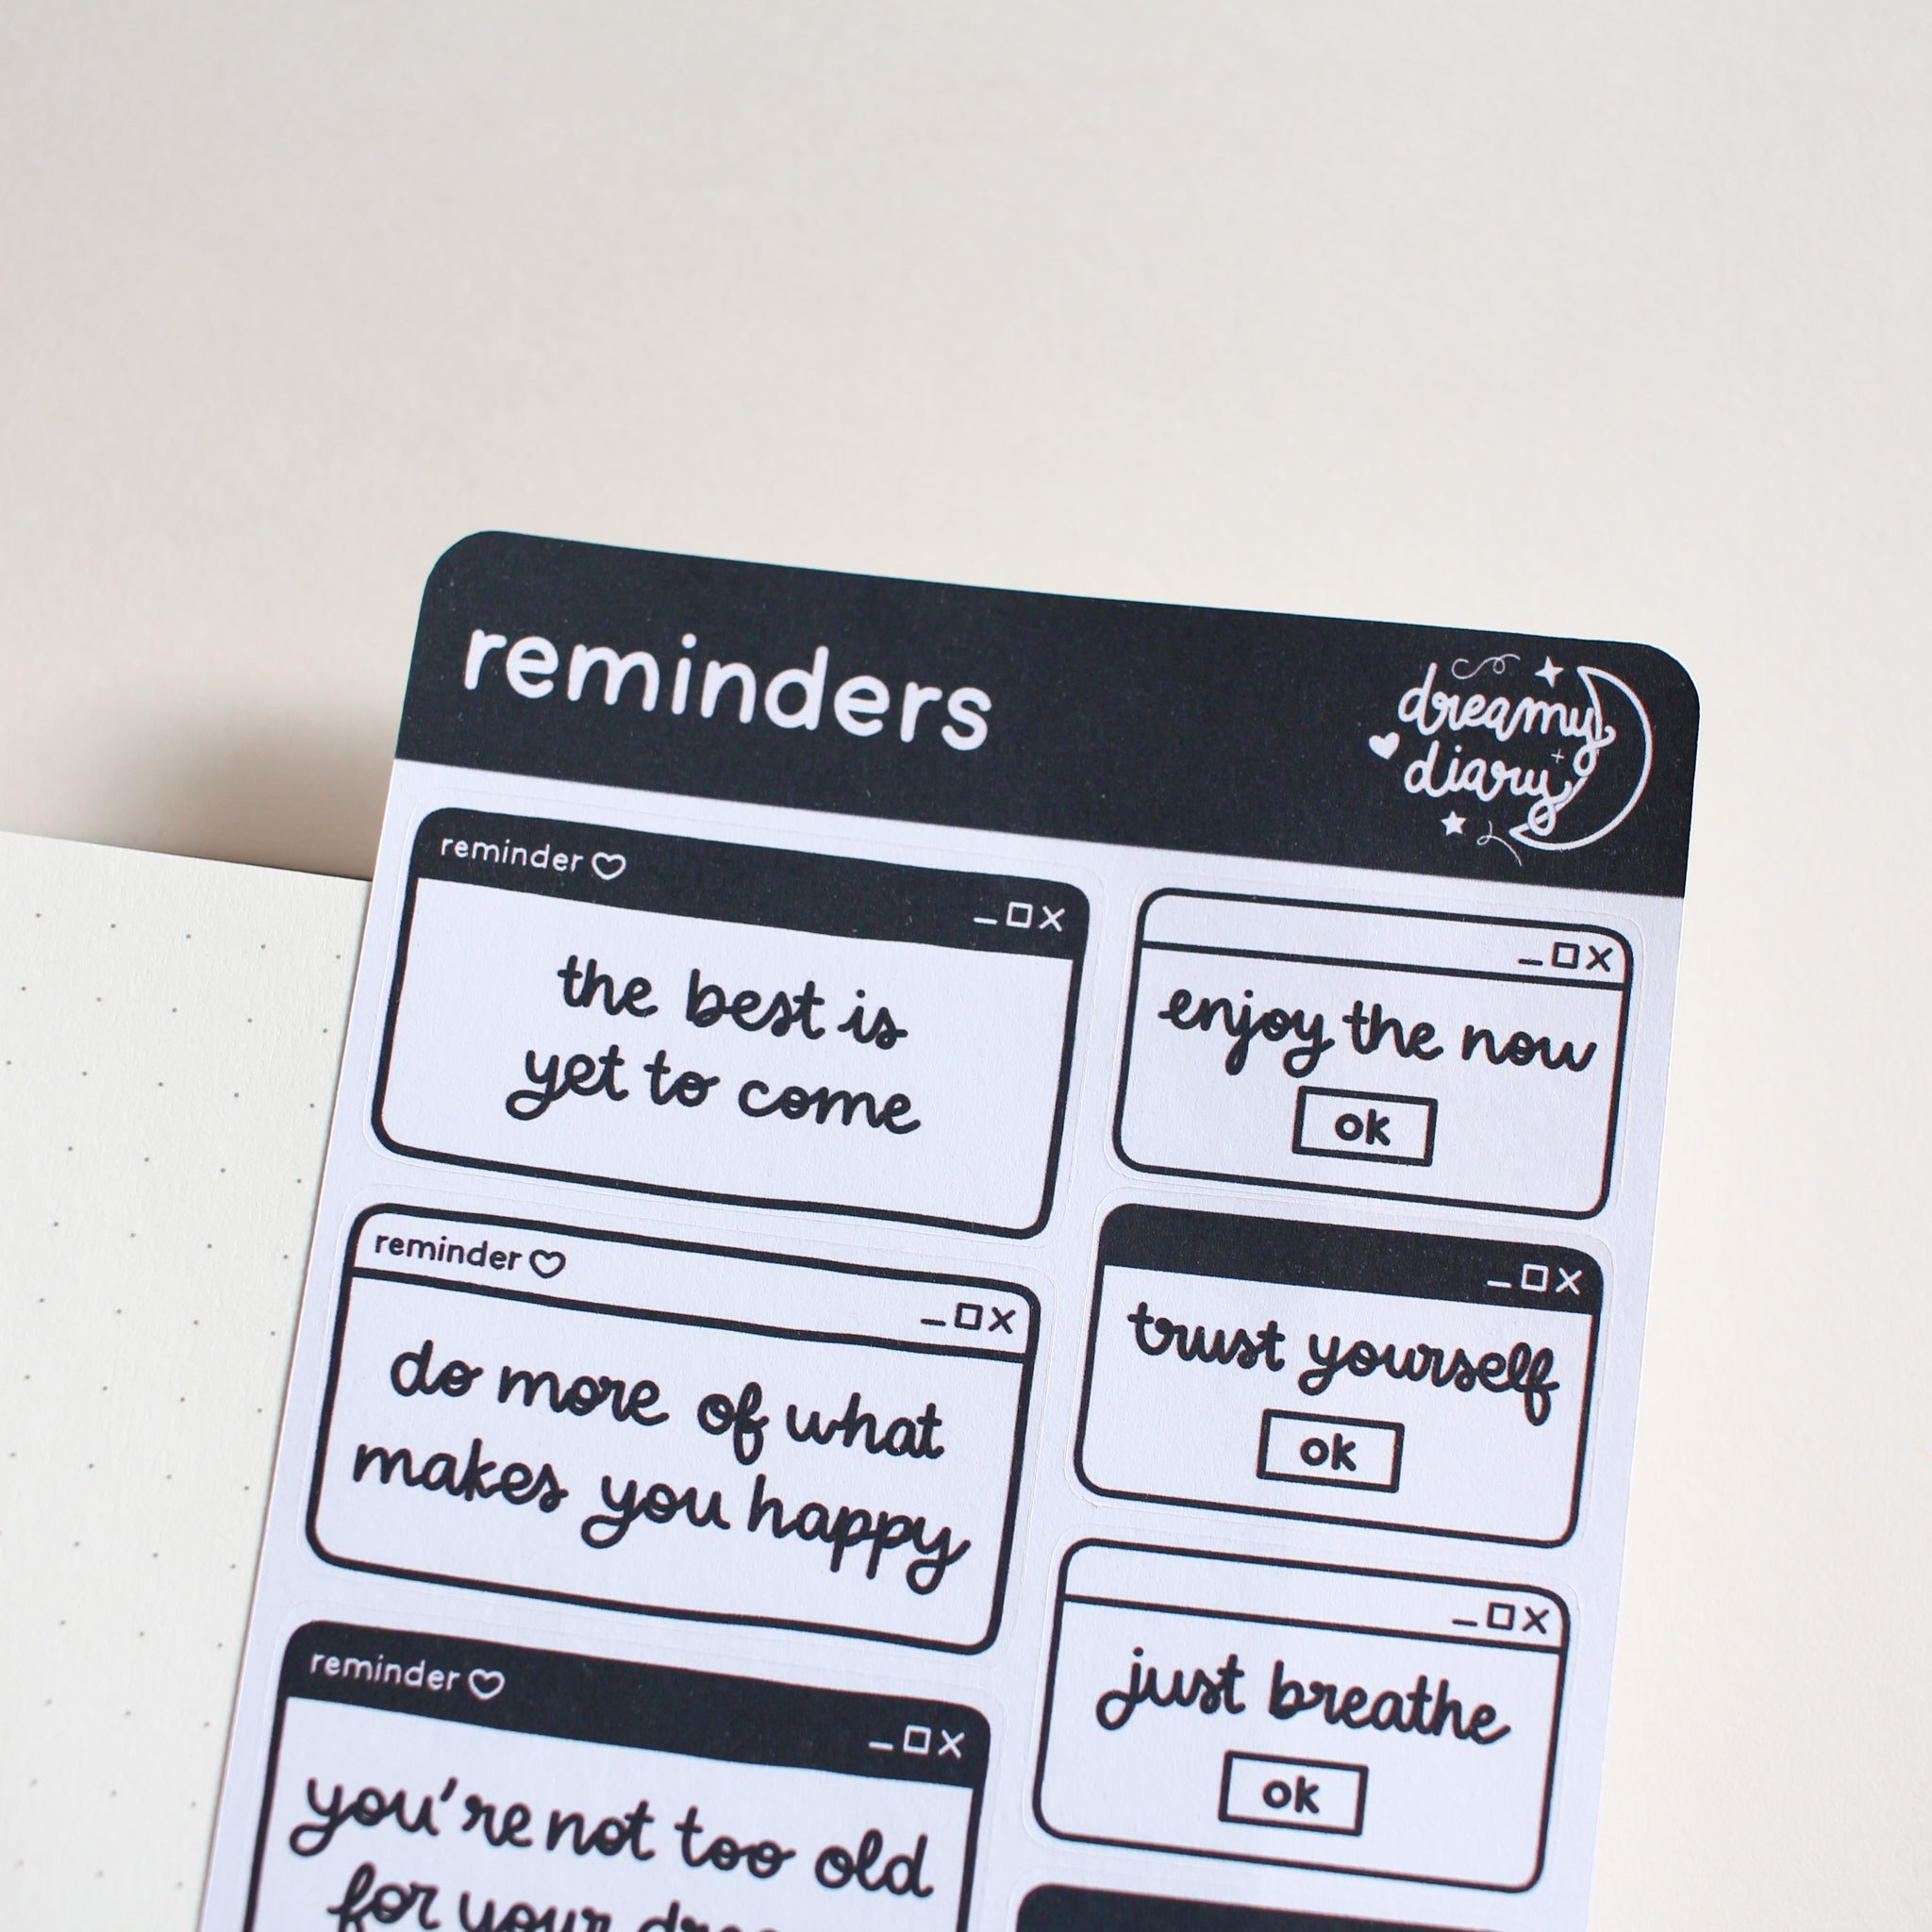 reminders
dreamy
diary
reminder
the best is
yet to come
enjoy the now
ok
reminder
do more of what
makes you happy
trust yourself
ok
reminder
you're not too old
for your
just breathe
ok